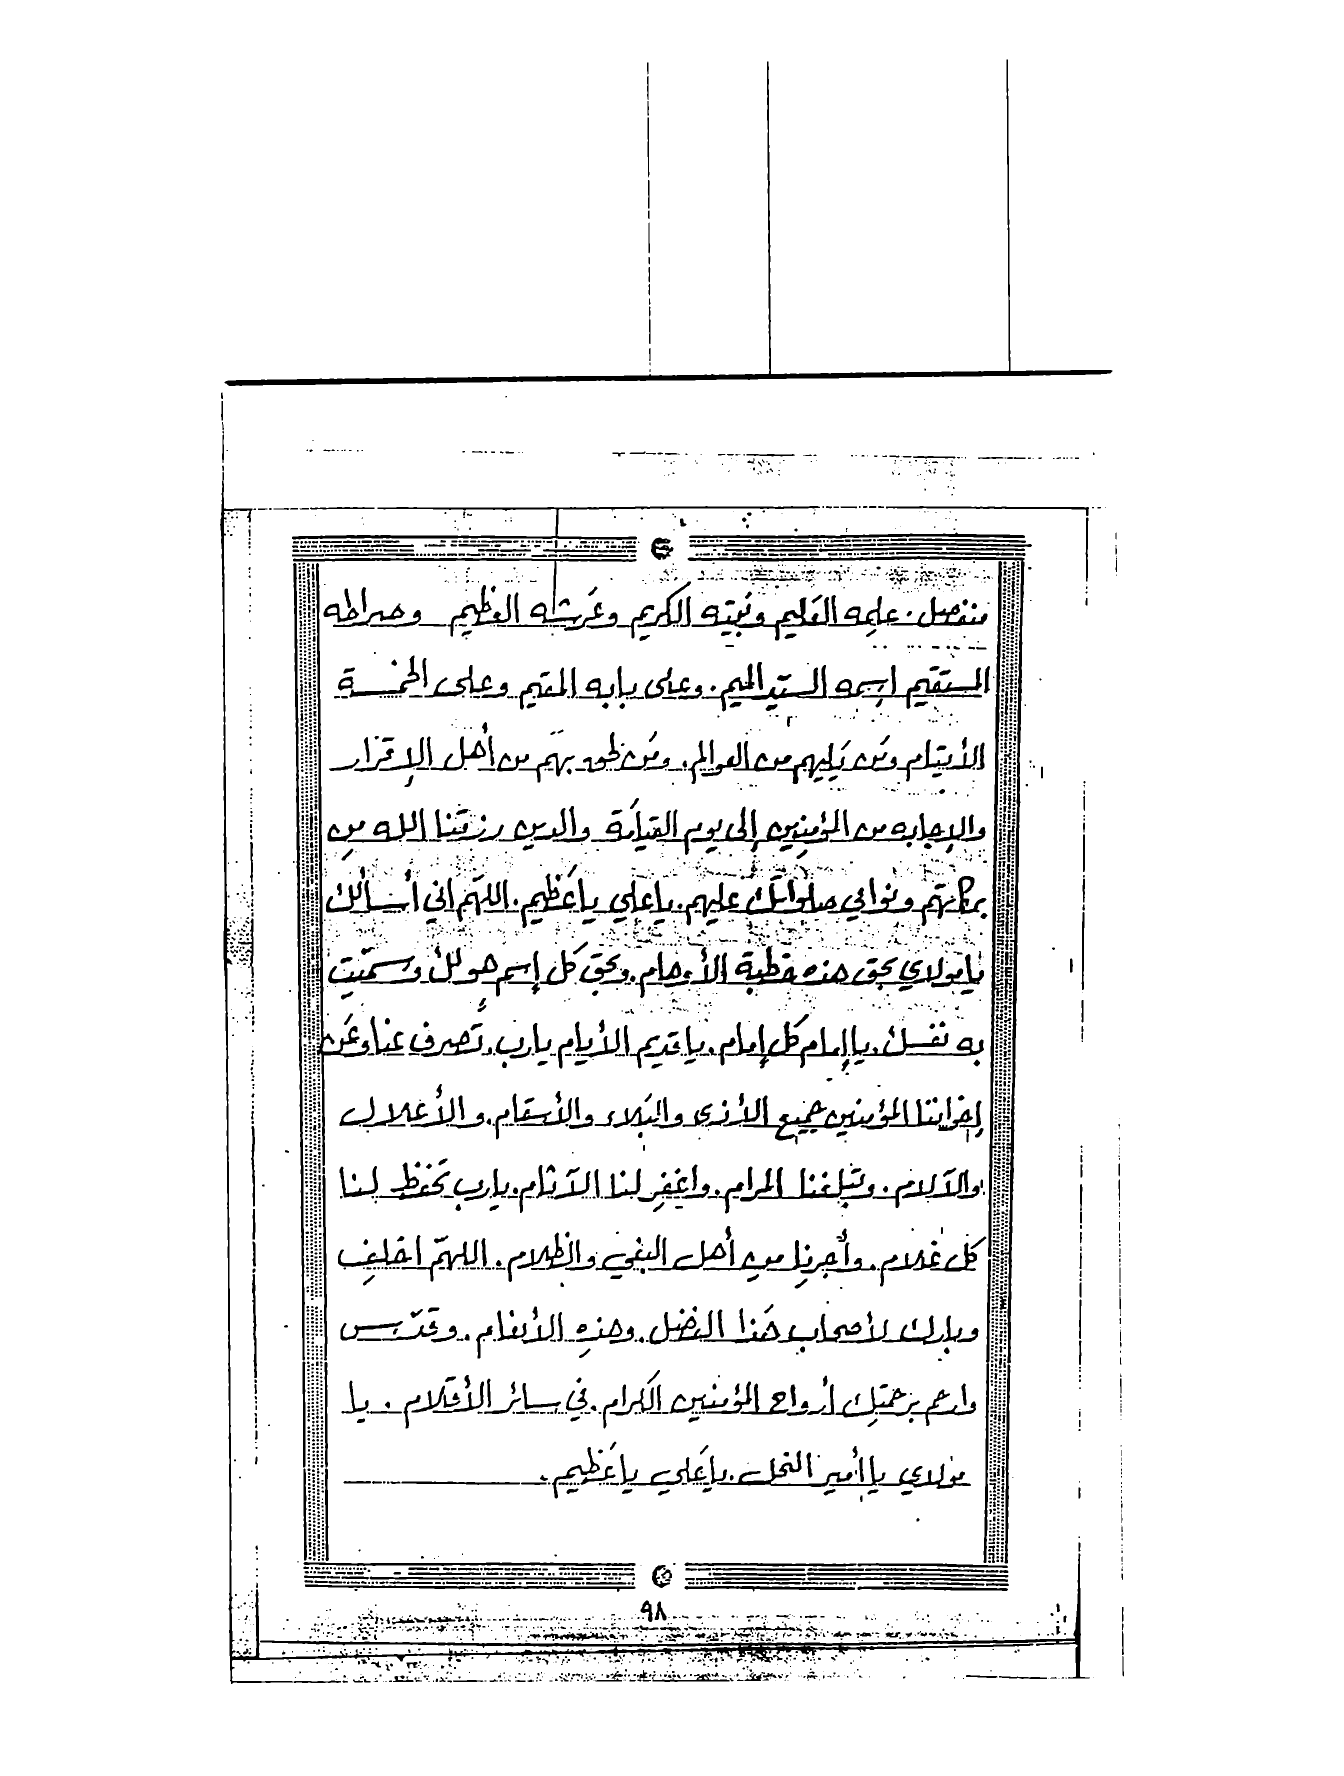 منفصل. علِمه العَليم ونَبيّه الكريم وعَرشه العظيم وصراطه
المستقيم اسِمه السيّد الميم. وعلى بابه المقيم وعلى الخمسة
الأيتام ومَن يَليهم من العوالم. ومَن لحق بهَم من أهل الإقرار
والإجابه من المؤمِنين إلى يوم القيامَة والدين رزقنا الله مِن
بركاتهم ونوالي صلواتك عليهم. يا علي يا عَظيم. اللهَم اني أسألك
يا مولاي بحق هذه خطبة الأوهام. وبحق كل إسم هو لك وسمّيت
به نفسك. يا إمام كل إمام. يا قديم الأيام يا رب. تَصرف عنا وعَن
إخواننا المؤمنين جميع الأذى والبَلاء والأسقام. والأعلال
والآلام. وتبلغنا المرام. واغفِر لنا الآثام. يا رب تحَفظ لنا
كل غلام. وأجرنِا من أهل البغي والظلام. اللهمّ اخلفِ
وبارك لأصحاب هَذا الفضل. وهذهِ الأنغام. وقدّس
وارحم برحمتِك أرواح المؤمنين الكرام. في سائر الأقلام. يا
مولاي يا أمير النحل. يا عَلي يا عَظيم.
٩٨